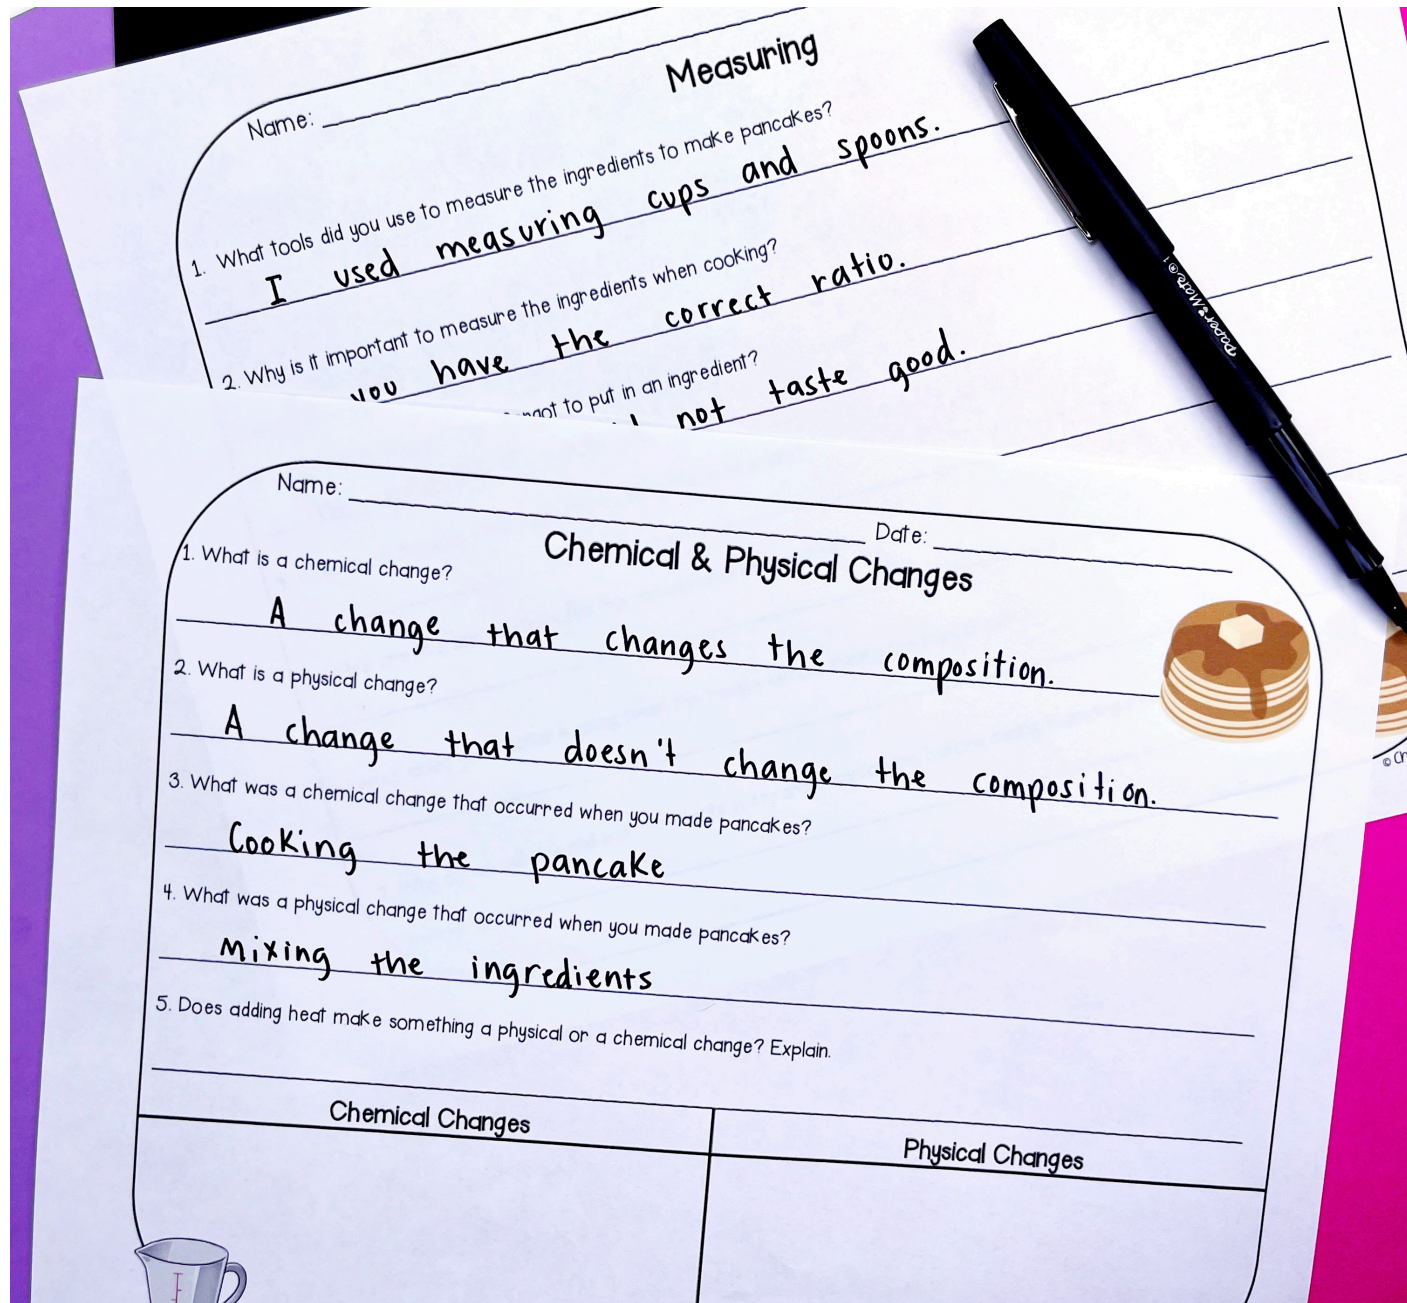 Measuring
Name:
1. What tools did you use to measure the ingredients to make pancakes?
I used measuring cups and spoons.
2. Why is it important to measure the ingredients when cooking?
you have the correct ratio.
to put in an ingredient?
not taste good.
Paper Mate®
Name: Date:
Chemical & Physical Changes
1. What is a chemical change?
A change that changes the composition.
2. What is a physical change?
A change that doesn't change the composition.
3. What was a chemical change that occurred when you made pancakes?
Cooking the pancake
4. What was a physical change that occurred when you made pancakes?
Mixing the ingredients
5. Does adding heat make something a physical or a chemical change? Explain.
Chemical Changes
Physical Changes